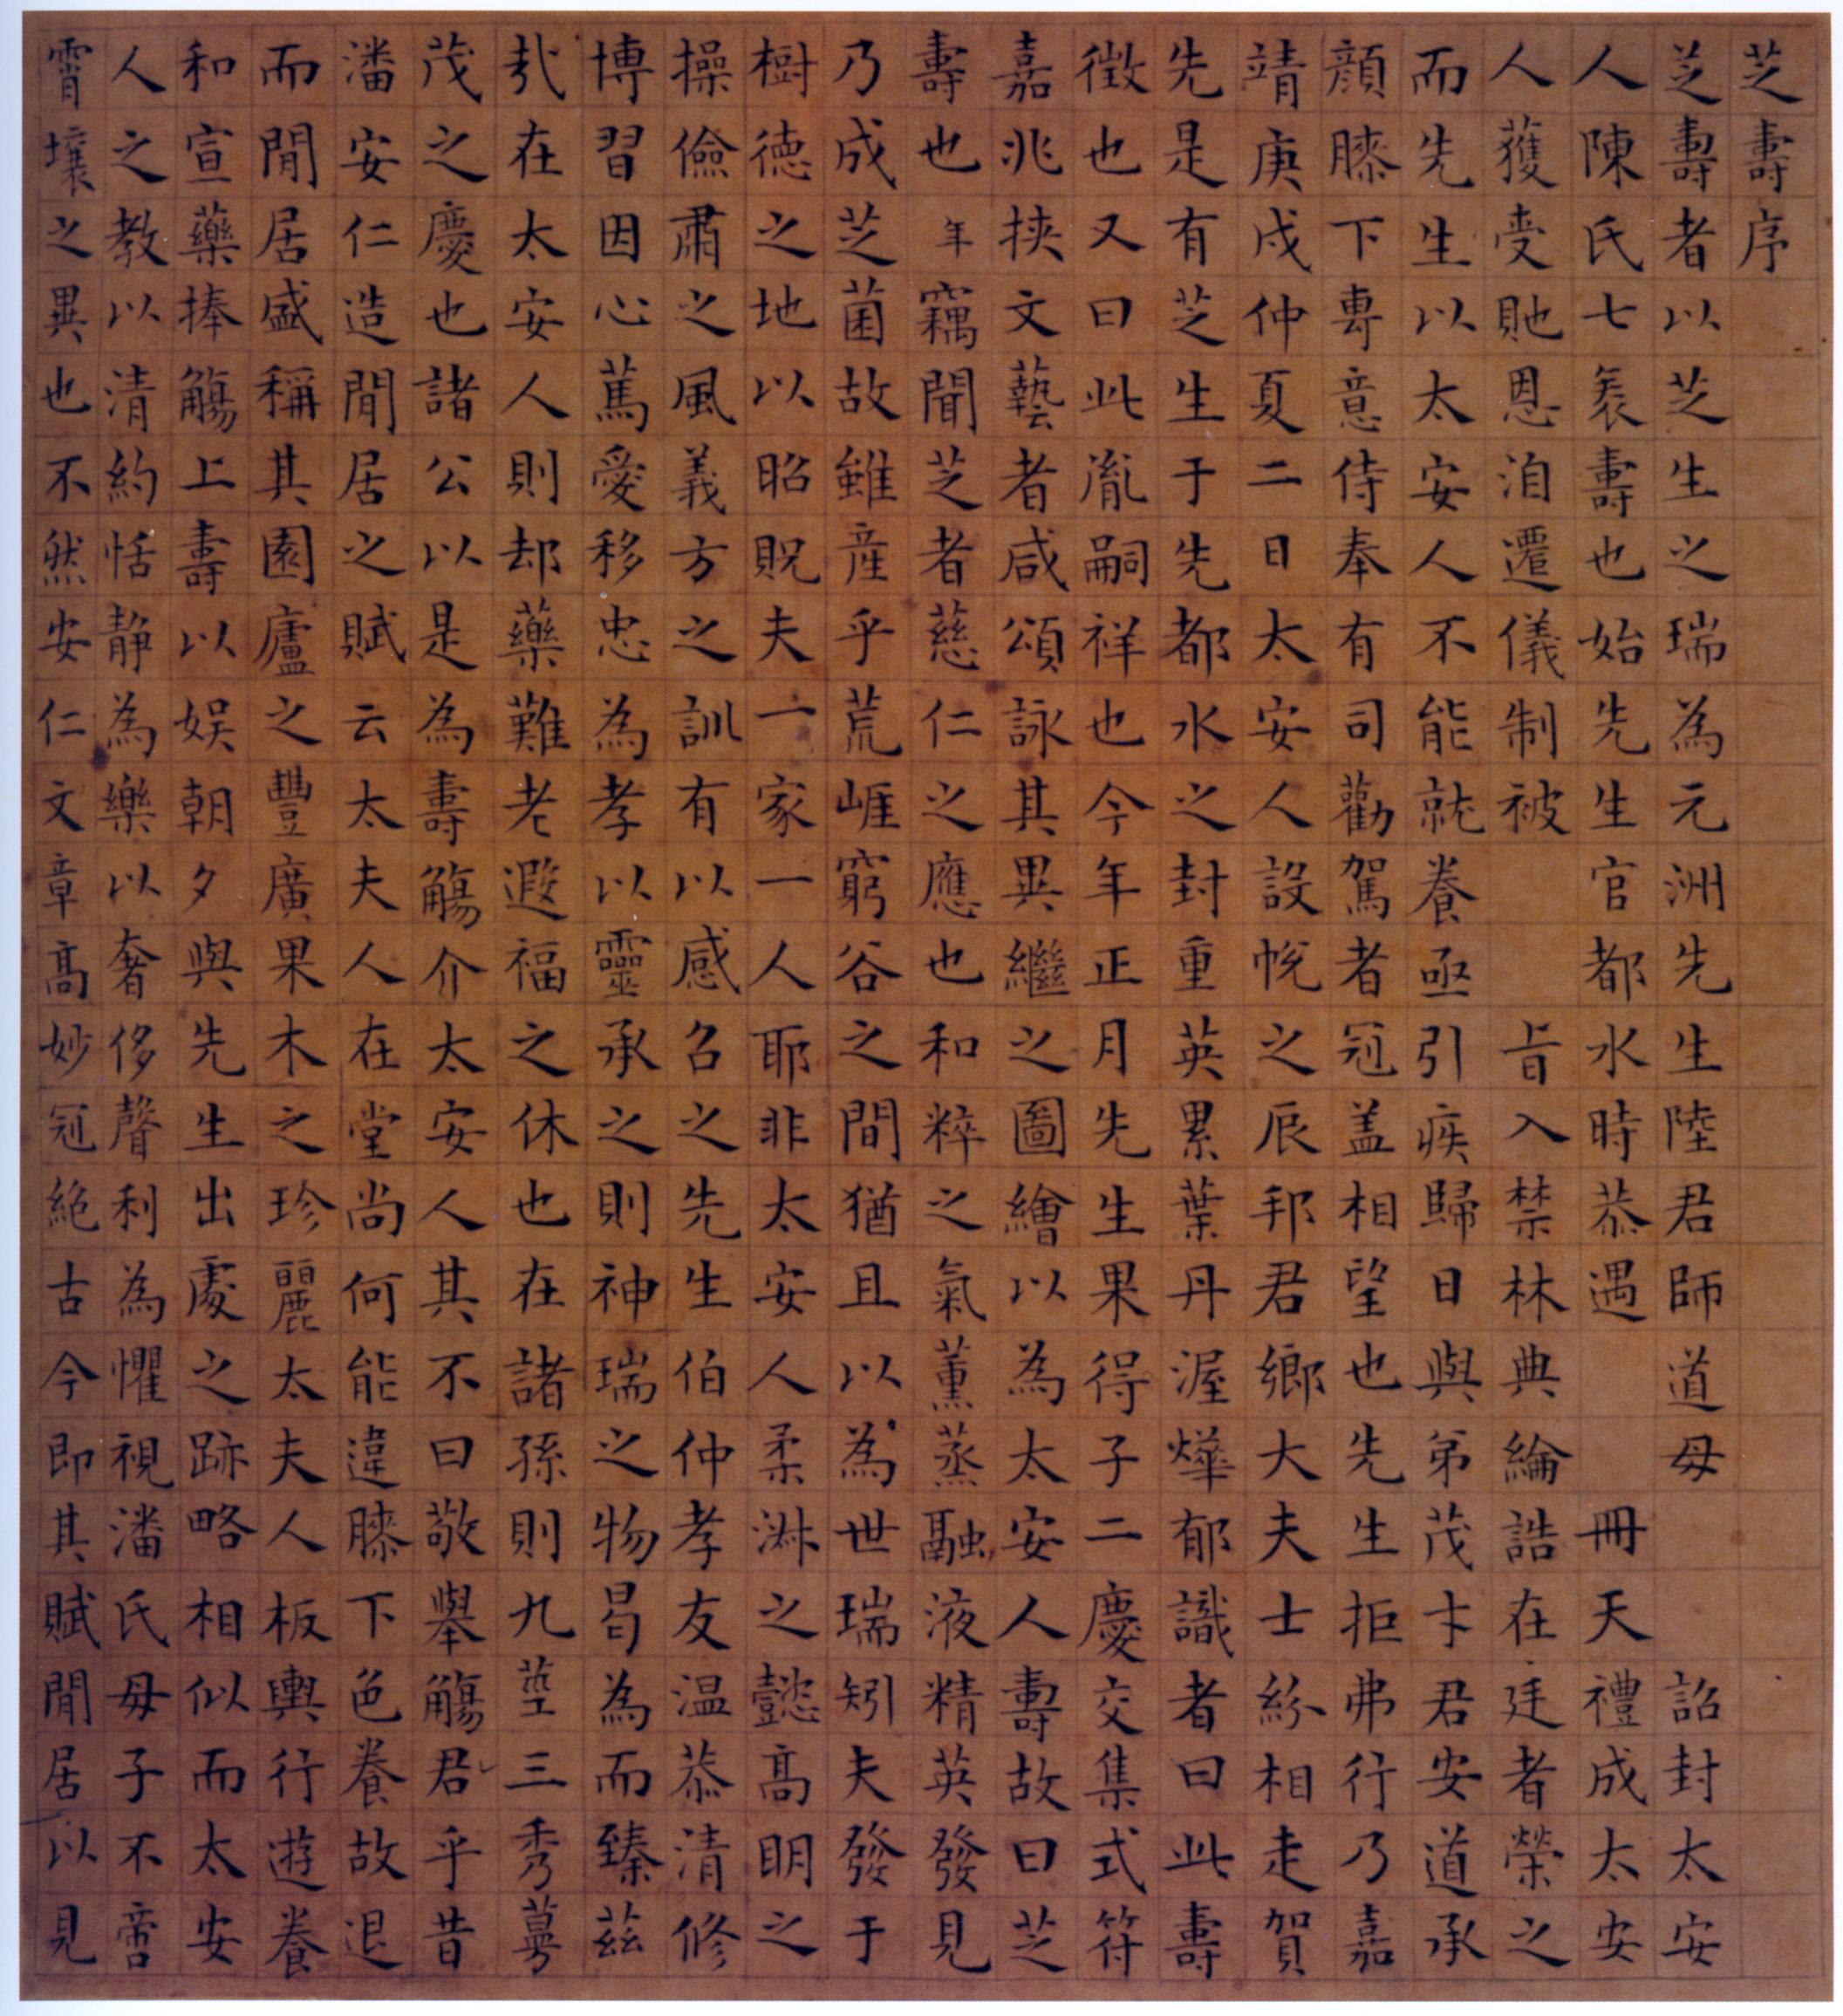 芝壽序
芝壽者以芝生之瑞為元洲先生陸君師道母詔封太安
人陳氏七袠壽也始先生官都水時恭遇冊天禮成太安
人獲受貤恩洎遷儀制被旨入禁林典綸誥在廷者榮之
而先生以太安人不能就養亟引疾歸日與弟茂卞君安道承
顔膝下專意侍奉有司勸駕者冠蓋相望也先生拒弗行乃嘉
靖庚戌仲夏二日太安人設帨之辰邦君鄉大夫士紛相走賀
先是有芝生于先都水之封重英累葉丹渥燁郁識者曰此壽
徵也又曰此胤嗣祥也今年正月先生果得子二慶交集式符
嘉兆挾文藝者咸頌詠其異繼之圖繪以為太安人壽故曰芝
壽也年竊聞芝者慈仁之應也和粹之氣薰蒸融液精英發見
乃成芝菌故雖産乎荒崕窮谷之間猶且以為世瑞矧夫發于
樹徳之地以昭貺夫一家一人耶非太安人柔淋之懿高明之
操儉肅之風義方之訓有以感召之先生伯仲孝友温恭清修
博習因心篤愛移忠為孝以靈承之則神瑞之物曷為而臻茲
㢤在太安人則却藥難老遐福之休也在諸孫則九莖三秀蕚
茂之慶也諸公以是為壽觴介太安人其不曰敬舉觴君乎昔
潘安仁造閒居之賦云太夫人在堂尚何能違膝下色養故退
而閒居盛稱其園廬之豐廣果木之珍麗太夫人板輿行遊養
和宣藥捧觴上壽以娱朝夕與先生出處之跡略相似而太安
人之教以清約恬静為樂以奢侈聲利為懼視潘氏母子不啻
霄壤之異也不然安仁文章高妙冠絶古今即其賦閒居以見